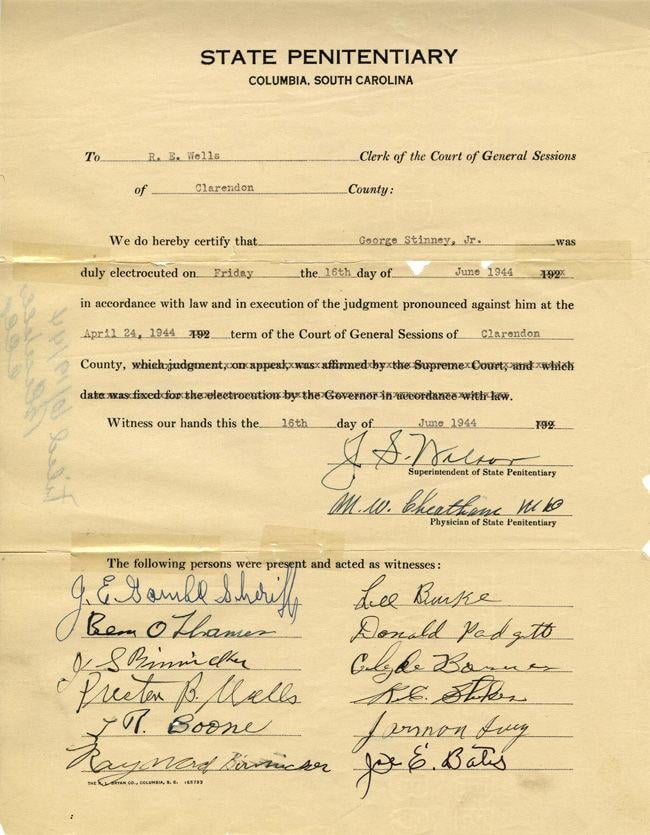 STATE PENITENTIARY
COLUMBIA, SOUTH CAROLINA
To R. E. Wells Clerk of the Court of General Sessions
of Clarendon County:
We do hereby certify that George Stinney, Jr. was
duly electrocuted on Friday the 16th day of June 1944 192
in accordance with law and in execution of the judgment pronounced against him at the
April 24, 1944 192 term of the Court of General Sessions of Clarendon
County, which judgment, on appeal, was affirmed by the Supreme Court, and which
date was fixed for the electrocution by the Governor in accordance with law.
Witness our hands this the 16th day of June 1944 192
J. S. Wilson
Superintendent of State Penitentiary
M. W. Cheatham MD
Physician of State Penitentiary
The following persons were present and acted as witnesses:
J. E. Gamble Sheriff Lee Burke
Ben O Thames Donald Padgett
J S Clyde
Preston B. Wells R. E. Stokes
J R. Boone
Raymond Joe E. Bates
THE R. L. BRYAN CO., COLUMBIA, S. C.
Filed 6/19/44